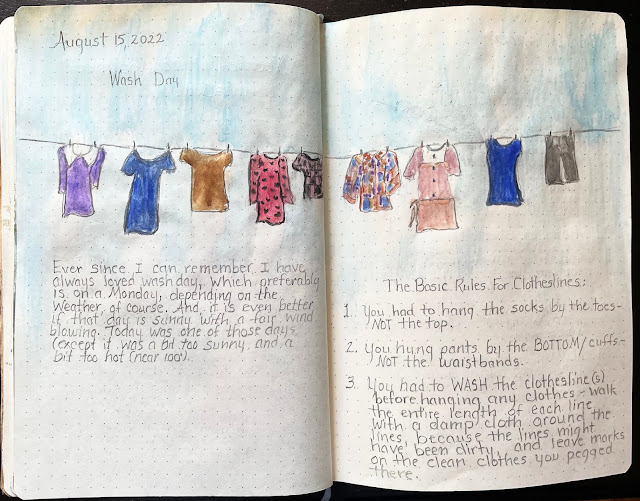 August 15, 2022
Wash Day
Ever since I can remember I have
always loved wash day, which preferably
is on a Monday, depending on the
weather of course. And it is even better
if that day is sunny with a fair wind
blowing. Today was one of those days
(except it was a bit too sunny and a
bit too hot (near 100°).
The Basic Rules For Clotheslines:
1. You had to hang the socks by the toes-
NOT the top.
2. You hung pants by the BOTTOM/cuffs-
NOT the waistbands.
3. You had to WASH the clothesline(s)
before hanging any clothes - walk
the entire length of each line
with a damp cloth around the
lines, because the lines might
have been dirty, and leave marks
on the clean clothes you pegged
there.